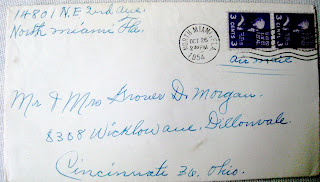 14801 N.E. 2nd ave.
North Miami Fla.
NORTH MIAMI, FLA.
OCT 26
2 PM
1954
3 CENTS 3
3 CENTS 3
air mail
Mr & Mrs Grover D. Morgan.
8308 Wicklow ave, Dillonvale.
Cincinnati 36, Ohio.